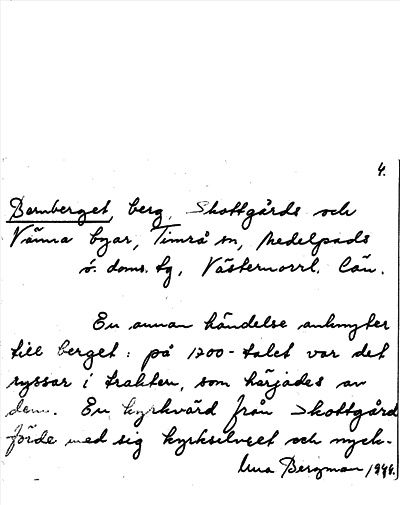 4.
Bamberget, berg, Skottgårds och
Vänna byar, Timrå sn, Medelpads
ö. doms. tg, Västernorrl. län.
En annan händelse anknyter
till berget: på 1700-talet var det
ryssar i trakten, som härjades av
dem. En kyrkvärd från Skottgård
förde med sig kyrksilvret och nyck-
Una Bergman 1948.